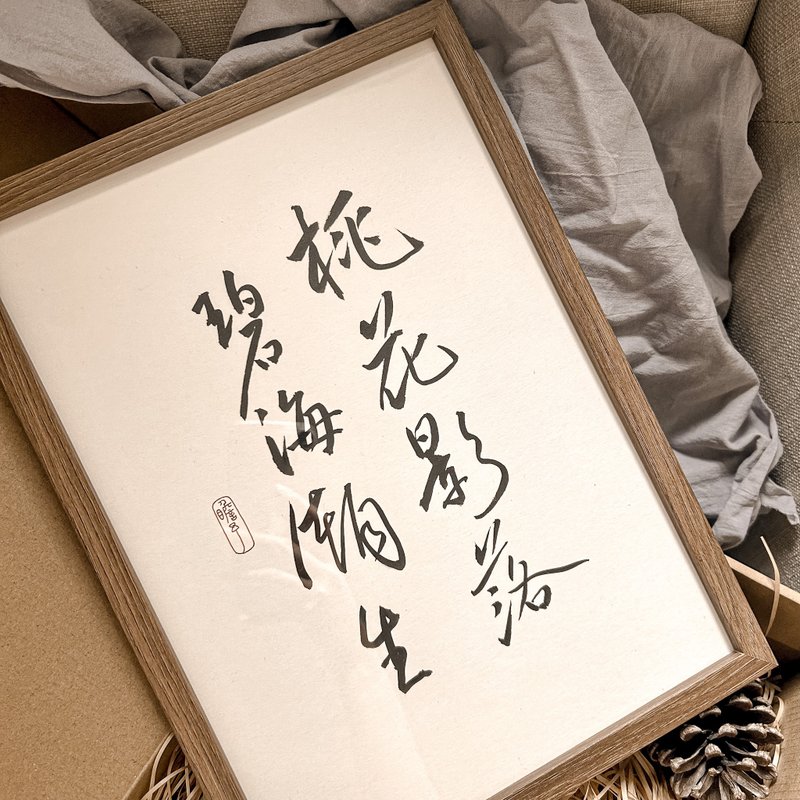 桃花影落
碧海潮生